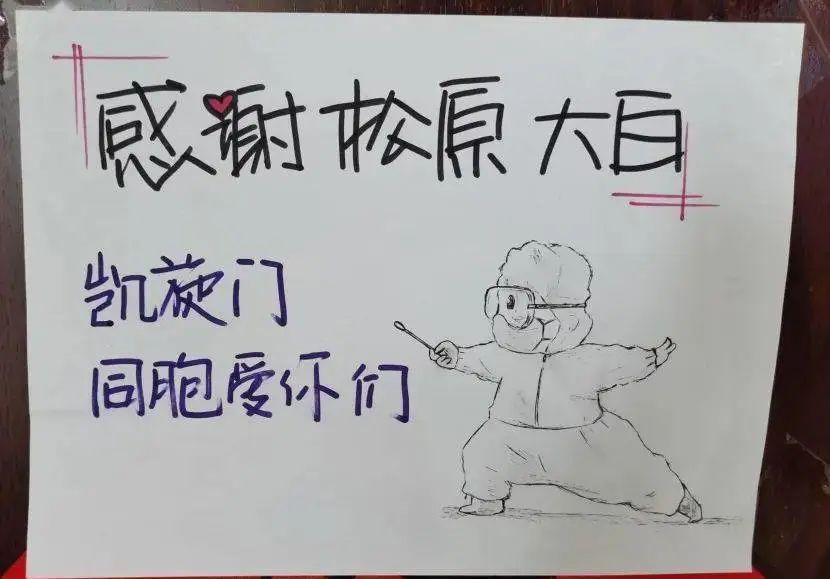 感谢松原大白
凯旋门
同胞爱你们